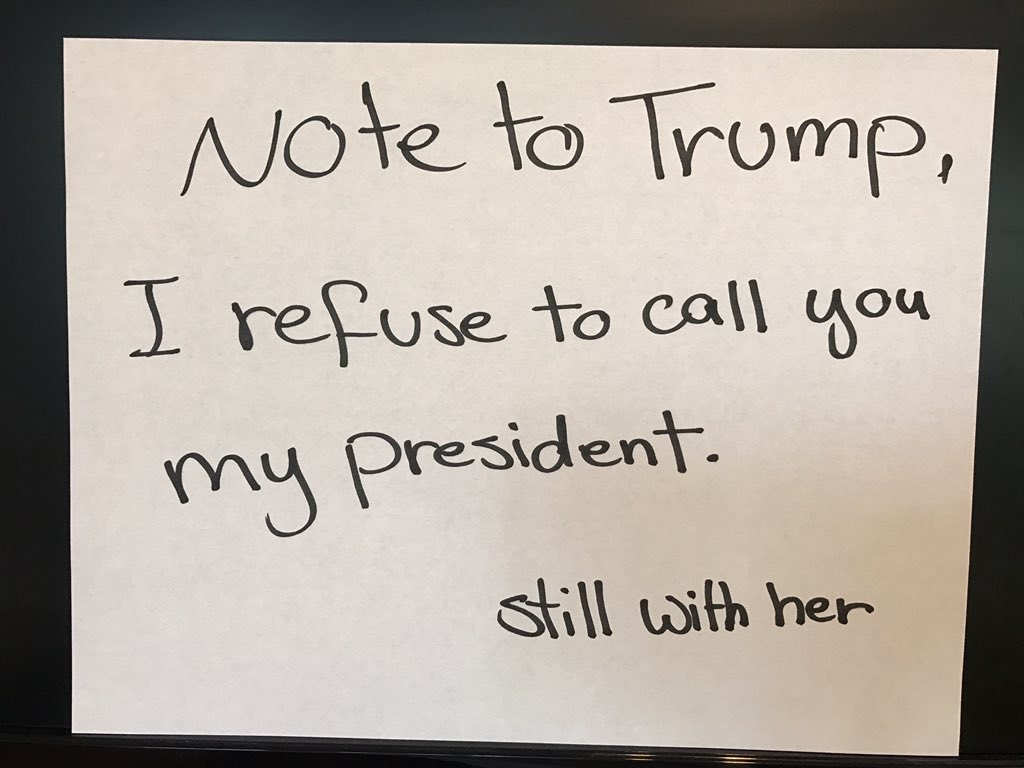 Note to Trump,
I refuse to call you
my president.
still with her